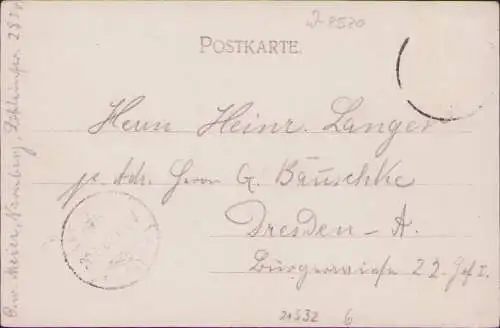 D-8520
POSTKARTE.
Herrn Heinr. Langer
pr. Adr. Herrn G. Bäuschke
Dresden-A.
Bürgerwiese 22. Hof I.
21532 6
Meier, Nürnberg,